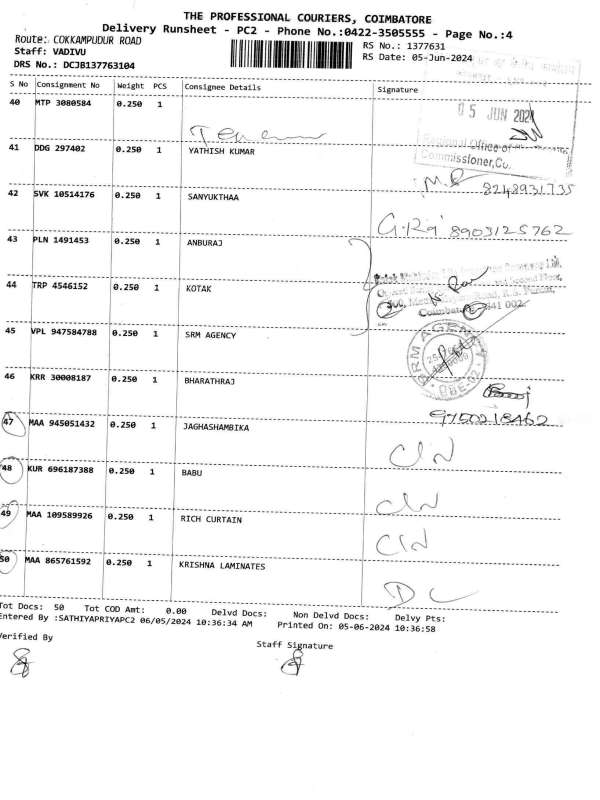 THE PROFESSIONAL COURIERS, COIMBATORE
Delivery Runsheet - PC2 - Phone No.:0422-3505555 - Page No.:4
Route: COKKAMPUDUR ROAD
RS No.: 1377631
Staff: VADIVU
RS Date: 05-Jun-2024
DRS No.: DCJB137763104
S No Consignment No Weight PCS Consignee Details Signature
40 MTP 3080584 0.250 1
05 JUN 2024
Regional Office of
Commissioner, Co.
41 DDG 297402 0.250 1 YATHISH KUMAR
8248931735
42 SVK 10514176 0.250 1 SANYUKTHAA
8903125762
43 PLN 1491453 0.250 1 ANBURAJ
44 TRP 4546152 0.250 1 KOTAK
641 002
45 VPL 947584788 0.250 1 SRM AGENCY
46 KRR 30008187 0.250 1 BHARATHRAJ
9750218462
47 MAA 945051432 0.250 1 JAGHASHAMBIKA
C/N
48 KUR 696187388 0.250 1 BABU
C/N
49 MAA 109589926 0.250 1 RICH CURTAIN
C/N
50 MAA 865761592 0.250 1 KRISHNA LAMINATES
DC
Tot Docs: 50 Tot COD Amt: 0.00 Delvd Docs: Non Delvd Docs: Delvy Pts:
Entered By :SATHIYAPRIYAPC2 06/05/2024 10:36:34 AM Printed On: 05-06-2024 10:36:58
Verified By
Staff Signature